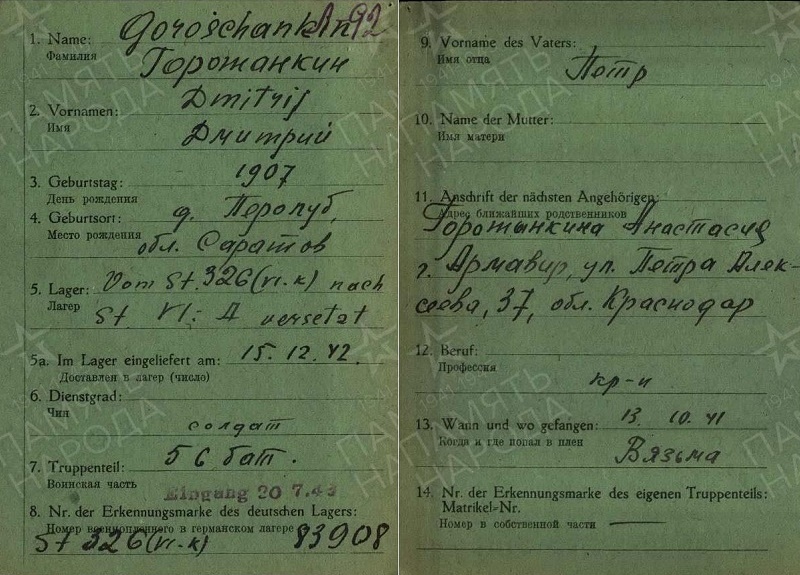 1. Name: Goroschankin 92
Фамилия Горожанкин
2. Vornamen: Dmitrij
Имя Дмитрий
3. Geburtstag: 1907
День рождения
4. Geburtsort: д.
Место рождения обл. Саратов
5. Lager: Vom St. 326 (VI-K) nach
Лагер St VI-Д versetzt
5a. Im Lager eingeliefert am: 15. 12. 42.
Доставлен в лагер (число)
6. Dienstgrad:
Чин солдат
7. Truppenteil: 56 бат.
Воинская часть
Eingang 20 7.43
8. Nr. der Erkennungsmarke des deutschen Lagers:
Номер военнопленного в германском лагере
St 326 (VI-K) 83908
9. Vorname des Vaters:
Имя отца Петр
10. Name der Mutter:
Имя матери
11. Anschrift der nächsten Angehörigen:
Адрес ближайших родственников
Горожанкина Анастасия
г. Армавир, ул. Петра Алек-
сеева, 37, обл. Краснодар
12. Beruf:
Профессия
кр-н
13. Wann und wo gefangen: 13. 10. 41
Когда и где попал в плен
Вязьма
14. Nr. der Erkennungsmarke des eigenen Truppenteils:
Matrikel-Nr.
Номер в собственной части —
ПАМЯТЬ НАРОДА